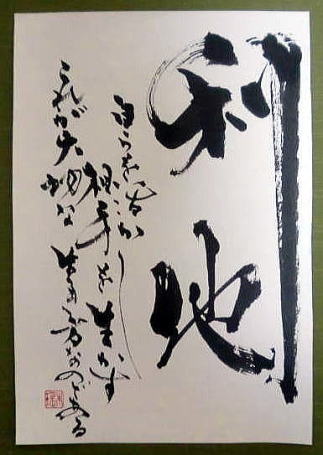 利他
自らを活かし
相手を生かす
これが大切な
生き方なのである